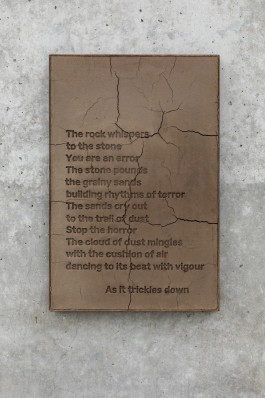 The rock whispers
to the stone
You are an error
The stone pounds
the grainy sands
building rhythms of terror
The sands cry out
to the trail of dust
Stop the horror
The cloud of dust mingles
with the cushion of air
dancing to its beat with vigour
As it trickles down